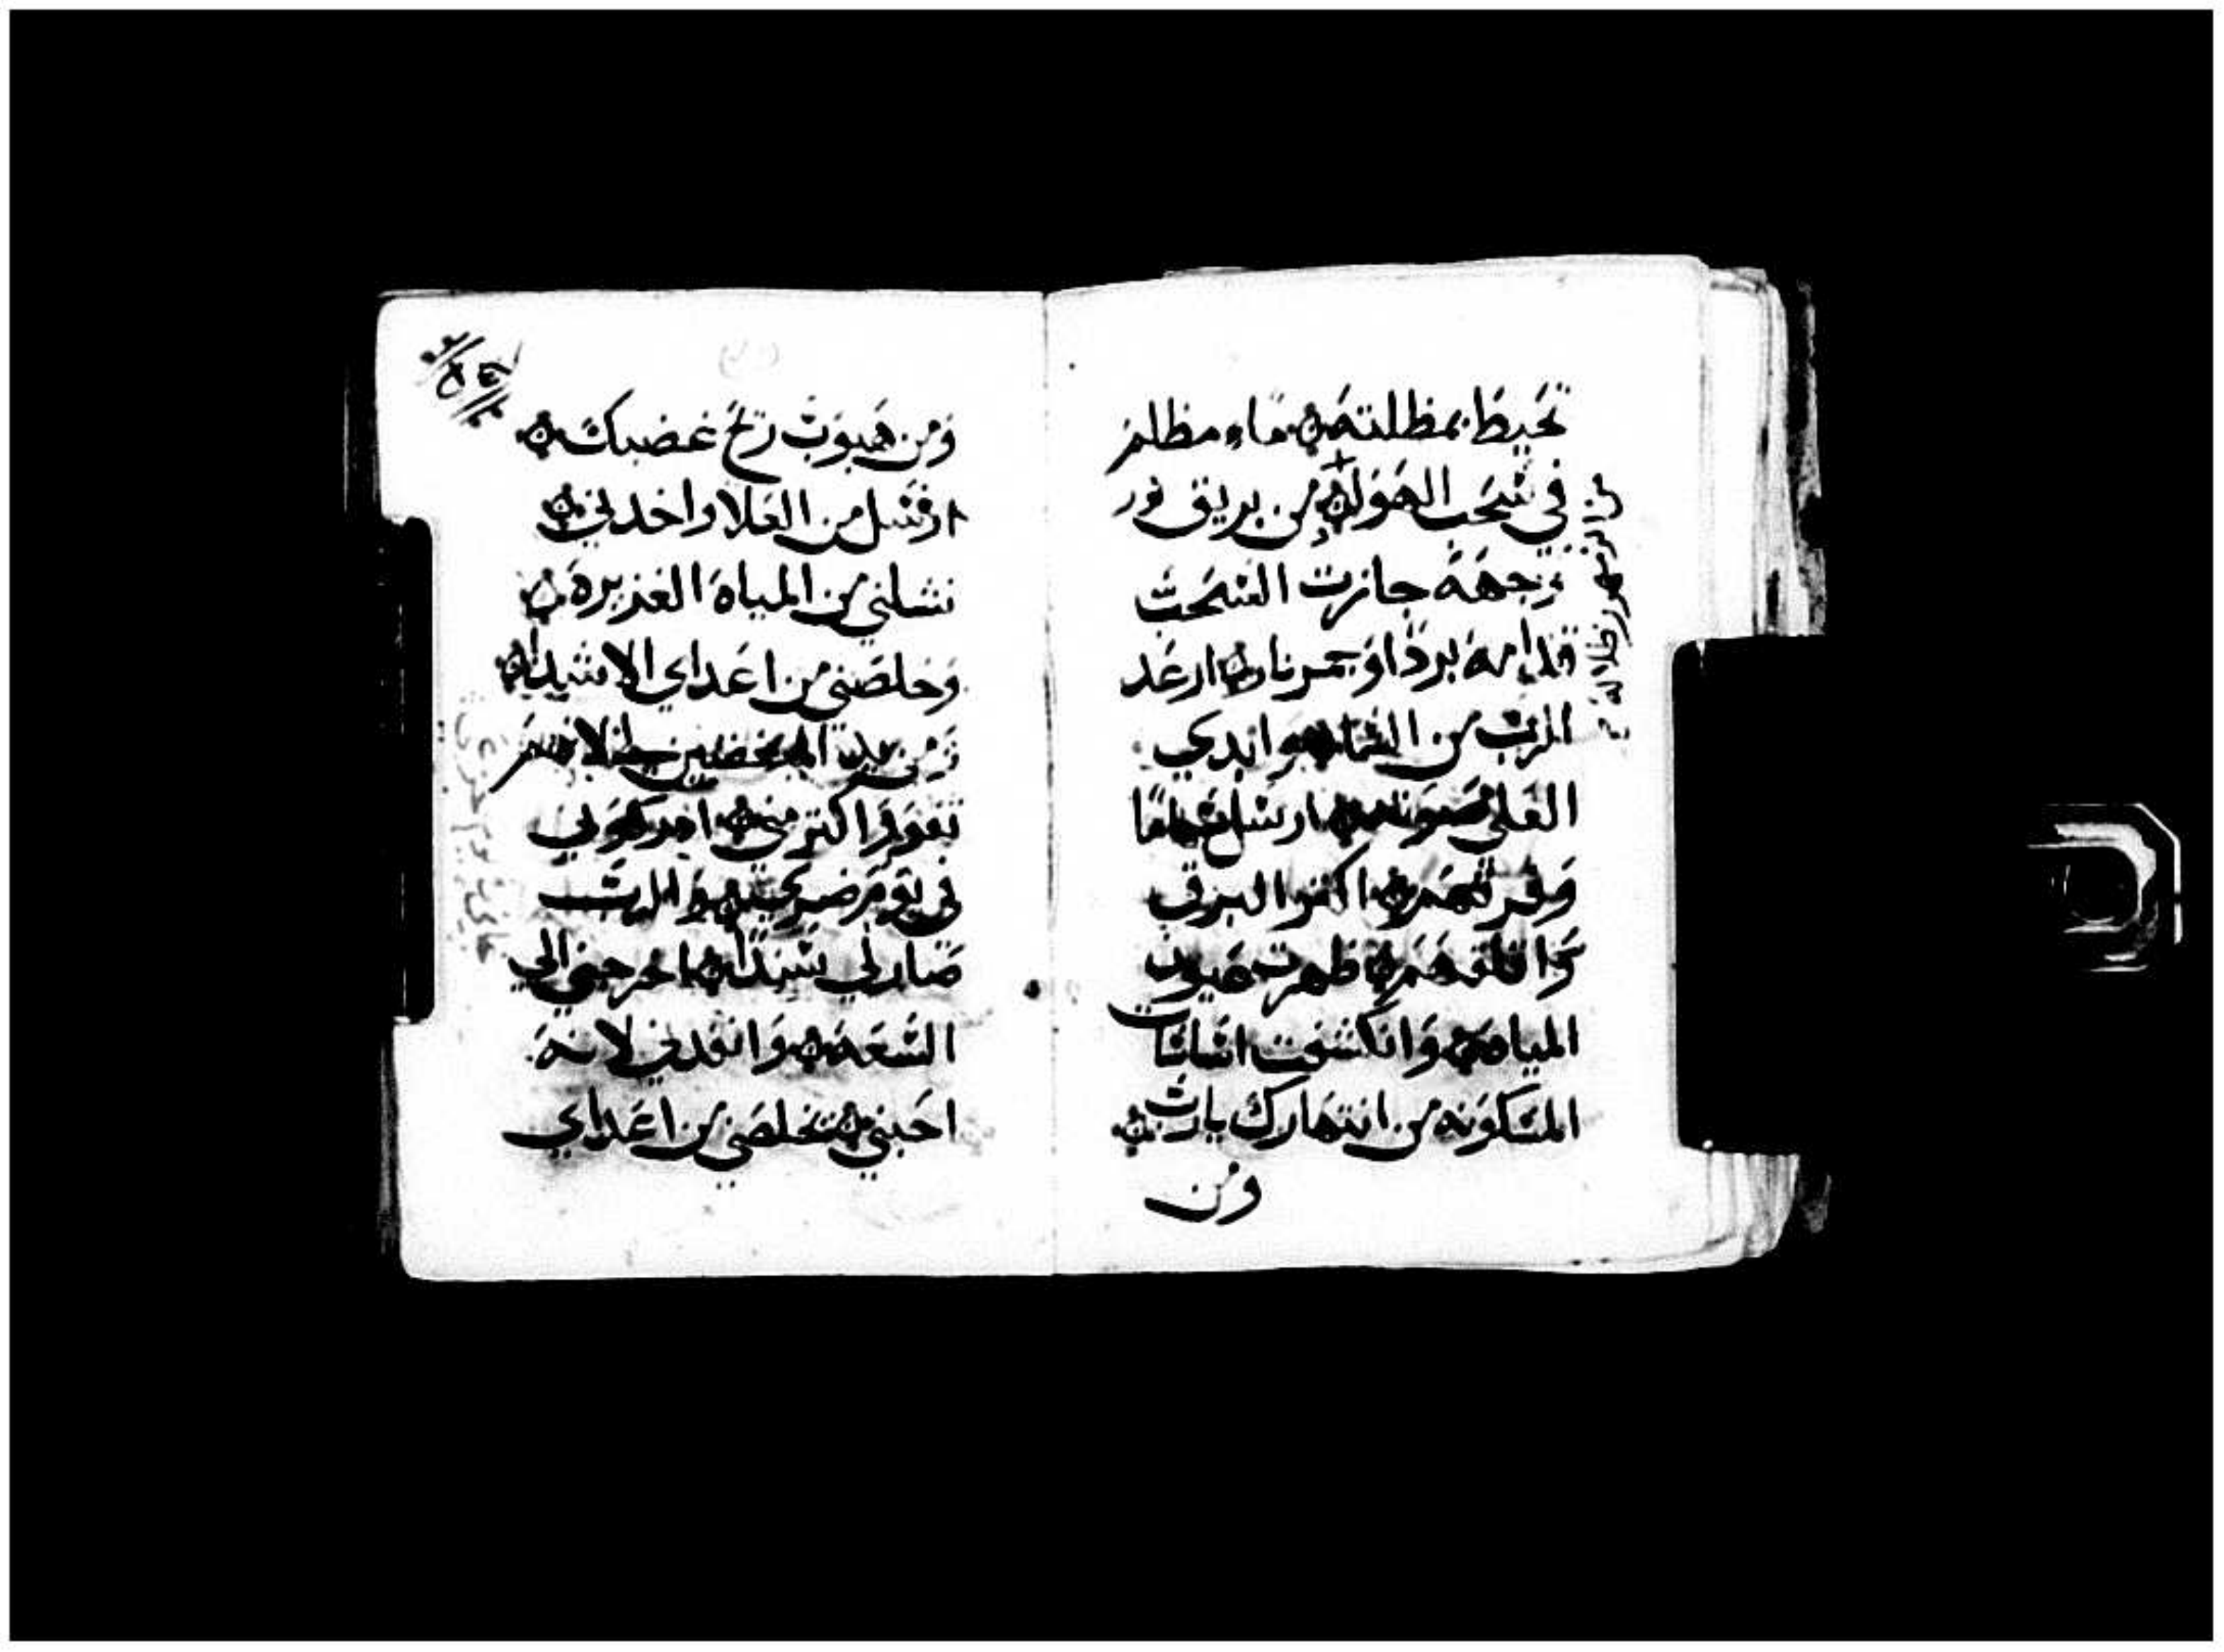 تحيط بمظلته ماء مظلم
في سحب الهوا من بريق نور
وجهه جازت السحب
قدامه بردا وجمر نار ارعد
الرب من السما وابدي
العلي صوته ارسل سهاما
وفرقهم اكثر البرق
واقلقهم ظهرت عيون
المياه وانكشفت اساسات
المسكونه من انتهارك يارب
ومن
ومن هبوب ريح غضبك
ارسل من العلا واخدني
نشلني من المياه الغزيره
وخلصني من اعداي الاشدا
ومن المبغضين لانهم
تقووا اكتر مني ادركوني
في يوم ضري والرب
صار لي سندا اخرجني الي
السعه وانقدني لانه
احبني تخلصني من اعداي